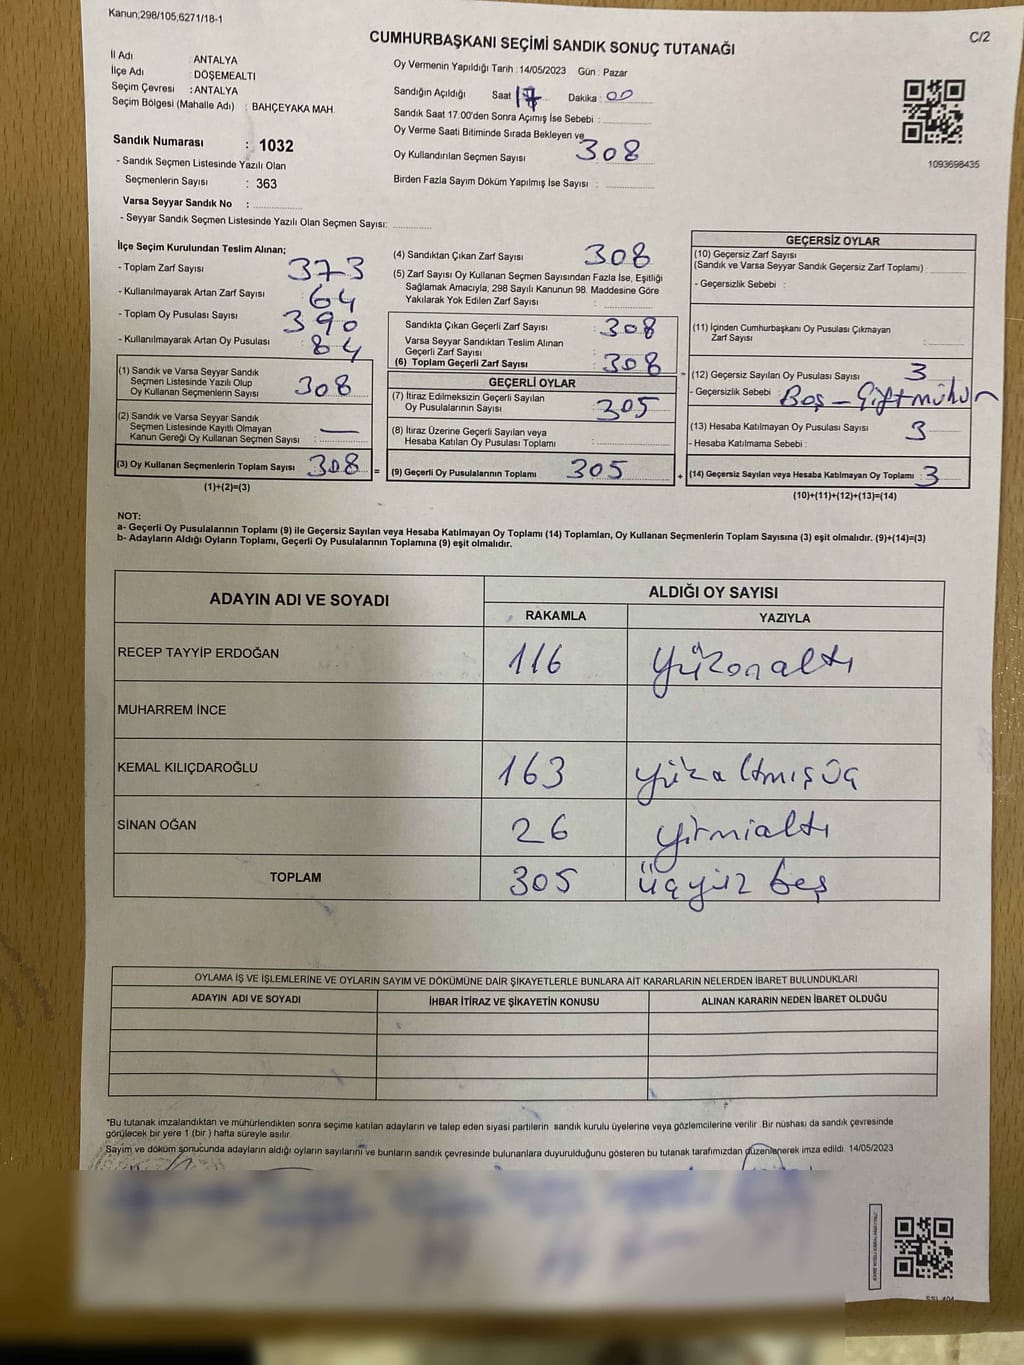 Kanun;298/105,6271/18-1
C/2
CUMHURBAŞKANI SEÇİMİ SANDIK SONUÇ TUTANAĞI
İl Adı : ANTALYA
İlçe Adı : DÖŞEMEALTI
Seçim Çevresi : ANTALYA
Seçim Bölgesi (Mahalle Adı) : BAHÇEYAKA MAH.
Sandık Numarası : 1032
- Sandık Seçmen Listesinde Yazılı Olan
Seçmenlerin Sayısı : 363
Varsa Seyyar Sandık No :
- Seyyar Sandık Seçmen Listesinde Yazılı Olan Seçmen Sayısı:
Oy Vermenin Yapıldığı Tarih : 14/05/2023 Gün : Pazar
Sandığın Açıldığı Saat 17 Dakika : 00
Sandık Saat 17.00'den Sonra Açımış İse Sebebi :
Oy Verme Saati Bitiminde Sırada Bekleyen ve
Oy Kullandırılan Seçmen Sayısı 308
Birden Fazla Sayım Döküm Yapılmış İse Sayısı :
1093698435
İlçe Seçim Kurulundan Teslim Alınan;
- Toplam Zarf Sayısı 373
- Kullanılmayarak Artan Zarf Sayısı 64
- Toplam Oy Pusulası Sayısı 390
- Kullanılmayarak Artan Oy Pusulası : 84
(1) Sandık ve Varsa Seyyar Sandık
Seçmen Listesinde Yazılı Olup
Oy Kullanan Seçmenlerin Sayısı 308
(2) Sandık ve Varsa Seyyar Sandık
Seçmen Listesinde Kayıtlı Olmayan
Kanun Gereği Oy Kullanan Seçmen Sayısı : —
(3) Oy Kullanan Seçmenlerin Toplam Sayısı 308
(1)+(2)=(3)
(4) Sandıktan Çıkan Zarf Sayısı 308
(5) Zarf Sayısı Oy Kullanan Seçmen Sayısından Fazla İse, Eşitliği
Sağlamak Amacıyla; 298 Sayılı Kanunun 98. Maddesine Göre
Yakılarak Yok Edilen Zarf Sayısı :
Sandıkta Çıkan Geçerli Zarf Sayısı : 308
Varsa Seyyar Sandıktan Teslim Alınan
Geçerli Zarf Sayısı :
(6) Toplam Geçerli Zarf Sayısı : 308
GEÇERLİ OYLAR
(7) İtiraz Edilmeksizin Geçerli Sayılan
Oy Pusulalarının Sayısı : 305
(8) İtiraz Üzerine Geçerli Sayılan veya
Hesaba Katılan Oy Pusulası Toplamı :
= (9) Geçerli Oy Pusulalarının Toplamı 305
GEÇERSİZ OYLAR
(10) Geçersiz Zarf Sayısı
(Sandık ve Varsa Seyyar Sandık Geçersiz Zarf Toplamı) :
- Geçersizlik Sebebi :
(11) İçinden Cumhurbaşkanı Oy Pusulası Çıkmayan
Zarf Sayısı :
(12) Geçersiz Sayılan Oy Pusulası Sayısı 3
- Geçersizlik Sebebi : Boş - Çift mühür
(13) Hesaba Katılmayan Oy Pusulası Sayısı 3
- Hesaba Katılmama Sebebi :
+ (14) Geçersiz Sayılan veya Hesaba Katılmayan Oy Toplamı : 3
(10)+(11)+(12)+(13)=(14)
NOT:
a- Geçerli Oy Pusulalarının Toplamı (9) ile Geçersiz Sayılan veya Hesaba Katılmayan Oy Toplamı (14) Toplamları, Oy Kullanan Seçmenlerin Toplam Sayısına (3) eşit olmalıdır. (9)+(14)=(3)
b- Adayların Aldığı Oyların Toplamı, Geçerli Oy Pusulalarının Toplamına (9) eşit olmalıdır.
ADAYIN ADI VE SOYADI ALDIĞI OY SAYISI
RAKAMLA YAZIYLA
RECEP TAYYİP ERDOĞAN 116 Yüzonaltı
MUHARREM İNCE
KEMAL KILIÇDAROĞLU 163 yüzaltmışüç
SİNAN OĞAN 26 yirmialtı
TOPLAM 305 üçyüz beş
OYLAMA İŞ VE İŞLEMLERİNE VE OYLARIN SAYIM VE DÖKÜMÜNE DAİR ŞİKAYETLERLE BUNLARA AİT KARARLARIN NELERDEN İBARET BULUNDUKLARI
ADAYIN ADI VE SOYADI İHBAR İTİRAZ VE ŞİKAYETİN KONUSU ALINAN KARARIN NEDEN İBARET OLDUĞU
*Bu tutanak imzalandıktan ve mühürlendikten sonra seçime katılan adayların ve talep eden siyasi partilerin sandık kurulu üyelerine veya gözlemcilerine verilir .Bir nüshası da sandık çevresinde
görülecek bir yere 1 (bir ) hafta süreyle asılır.
Sayım ve döküm sonucunda adayların aldığı oyların sayılarını ve bunların sandık çevresinde bulunanlara duyurulduğunu gösteren bu tutanak tarafımızdan düzenlenerek imza edildi. 14/05/2023